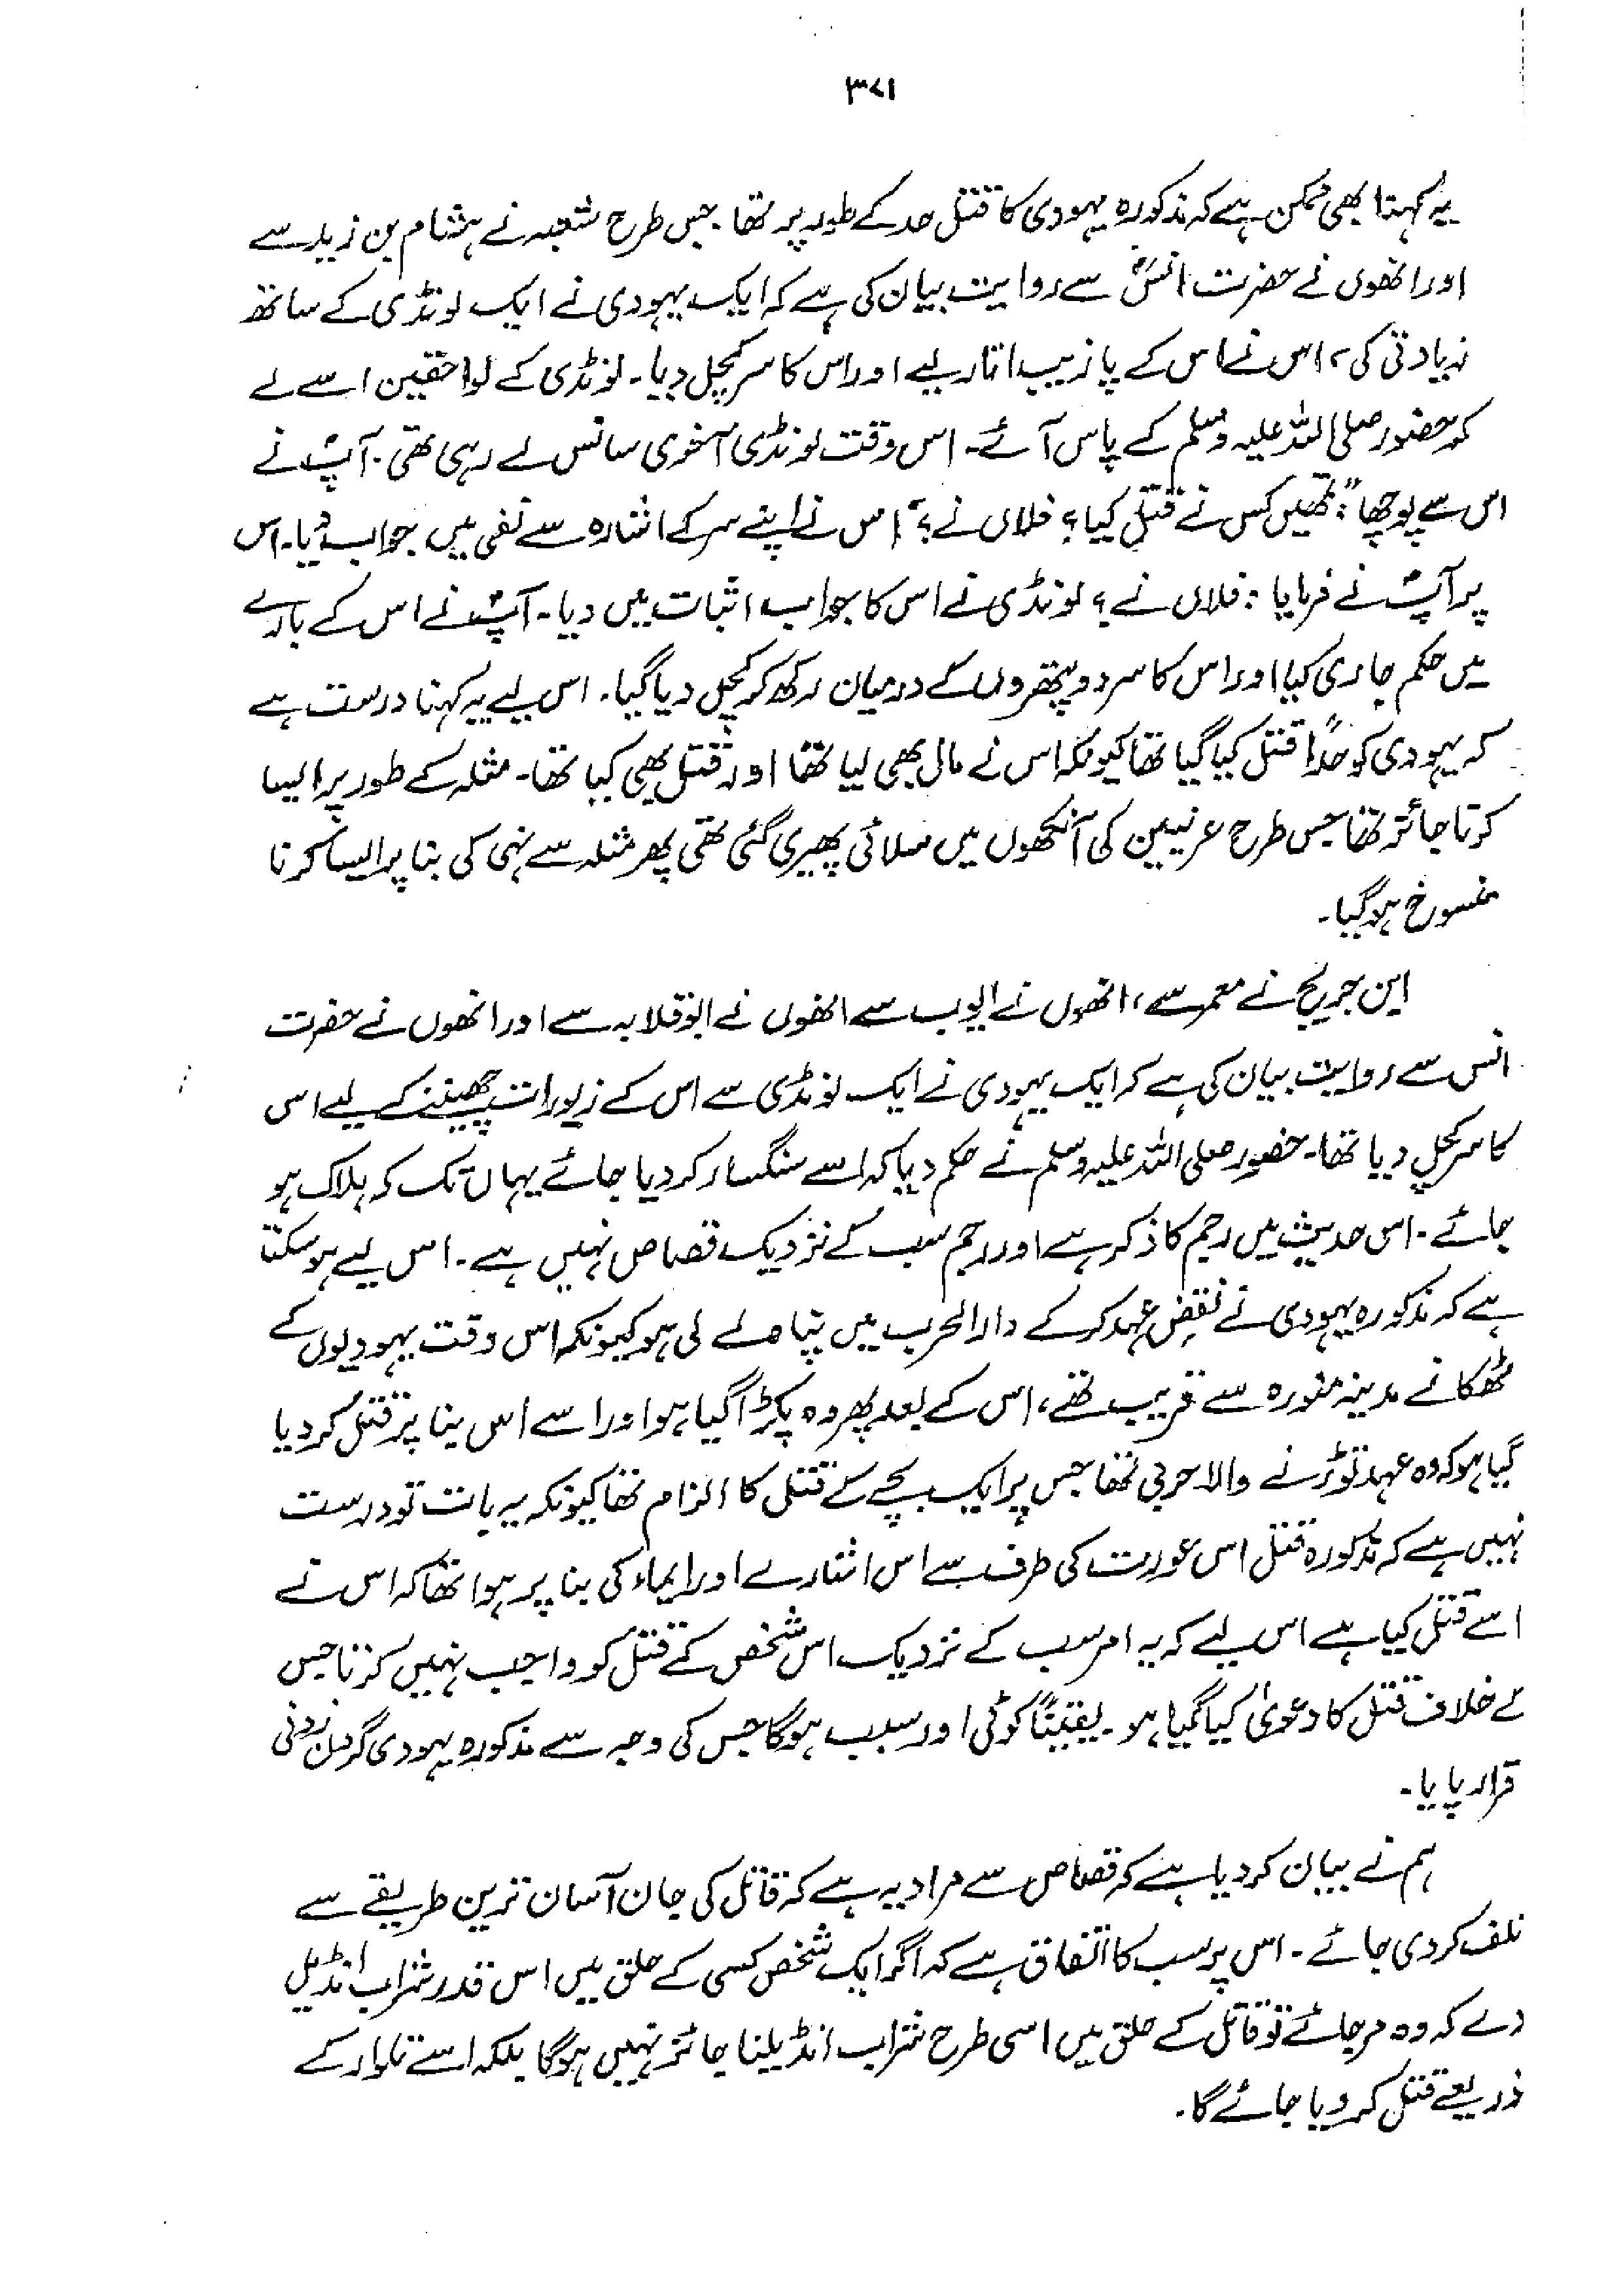 ۳۷۱
یہ کہنا بھی ممکن ہے کہ مذکورہ یہودی کا قتل حد کے طور پر تھا جس طرح شعبہ نے ہشام بن زید سے
اور انھوں نے حضرت انسؓ سے روایت بیان کی ہے کہ ایک یہودی نے ایک لونڈی کے ساتھ
زیادتی کی، اس نے اس کے پازیب اتار لیے اور اس کا سر کچل دیا۔ لونڈی کے لواحقین اسے لے
کر حضور صلی اللہ علیہ وسلم کے پاس آئے۔ اس وقت لونڈی آخری سانس لے رہی تھی۔ آپؐ نے
اس سے پوچھا: "تمھیں کس نے قتل کیا؟ فلاں نے؟" اس نے اپنے سر کے اشارہ سے نفی میں جواب دیا۔ اس
پر آپؐ نے فرمایا: فلاں نے؟ لونڈی نے اس کا جواب اثبات میں دیا۔ آپؐ نے اس کے بارے
میں حکم جاری کیا اور اس کا سر دو پتھروں کے درمیان رکھ کر کچل دیا گیا۔ اس لیے یہ کہنا درست ہے
کہ یہودی کو حداً قتل کیا گیا تھا کیونکہ اس نے مال بھی لیا تھا اور قتل بھی کیا تھا۔ مثلہ کے طور پر ایسا
کرنا جائز تھا جس طرح عرنیین کی آنکھوں میں سلائی پھیری گئی تھی پھر مثلہ سے نہی کی بنا پر ایسا کرنا
منسوخ ہو گیا۔
ابن جریج نے معمر سے، انھوں نے ایوب سے انھوں نے ابو قلابہ سے اور انھوں نے حضرت
انس سے روایت بیان کی ہے کہ ایک یہودی نے ایک لونڈی سے اس کے زیورات چھیننے کے لیے اس
کا سر کچل دیا تھا۔ حضور صلی اللہ علیہ وسلم نے حکم دیا کہ اسے سنگسار کر دیا جائے یہاں تک کہ ہلاک ہو
جائے۔ اس حدیث میں رجم کا ذکر ہے اور رجم سب کے نزدیک قصاص نہیں ہے۔ اس لیے ہو سکتا
ہے کہ مذکورہ یہودی نے نقضِ عہد کر کے دارالحرب میں پناہ لے لی ہو کیونکہ اس وقت یہودیوں کے
ٹھکانے مدینہ منورہ سے قریب تھے، اس کے بعد پھر وہ پکڑا گیا ہو اور اسے اس بنا پر قتل کر دیا
گیا ہو کہ وہ عہد توڑنے والا حربی تھا جس پر ایک بچے کے قتل کا الزام تھا کیونکہ یہ بات تو درست
نہیں ہے کہ مذکورہ قتل اس عورت کی طرف سے اس اشارے اور ایماء کی بنا پر ہوا تھا کہ اس نے
اسے قتل کیا ہے اس لیے کہ یہ امر سب کے نزدیک اس شخص کے قتل کو واجب نہیں کرتا جس
کے خلاف قتل کا دعویٰ کیا گیا ہو۔ یقیناً کوئی اور سبب ہو گا جس کی وجہ سے مذکورہ یہودی گردن زدنی
قرار پایا۔
ہم نے بیان کر دیا ہے کہ قصاص سے مراد یہ ہے کہ قاتل کی جان آسان ترین طریقے سے
تلف کر دی جائے۔ اس پر سب کا اتفاق ہے کہ اگر ایک شخص کسی کے حلق میں اس قدر شراب انڈیل
دے کہ وہ مر جائے تو قاتل کے حلق میں اسی طرح شراب انڈیلنا جائز نہیں ہوگا بلکہ اسے تلوار کے
ذریعے قتل کر دیا جائے گا۔